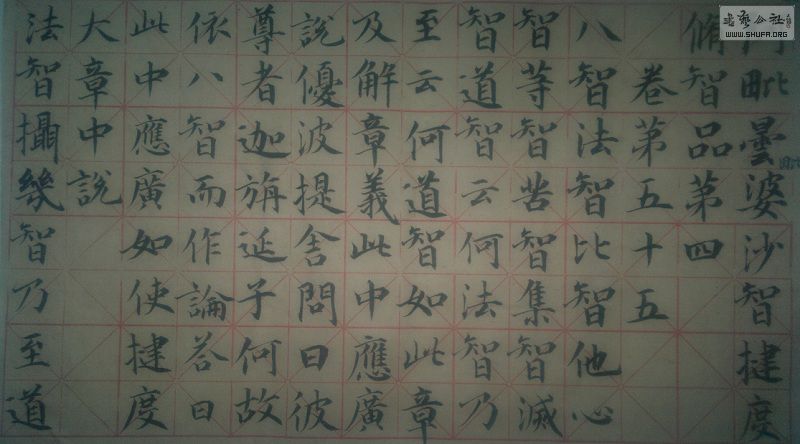 毗曇婆沙智揵度
脩智品第四
卷第五十五
八智法智比智他心
智等智苦智集智滅
智道智云何法智乃
至云何道智如此章
及解章義此中應廣
說優波提舍問曰彼
尊者迦旃延子何故
依八智而作論答曰
此中應廣如使揵度
大章中說
法智攝幾智乃至道
書藝公社
WWW.SHUFA.ORG